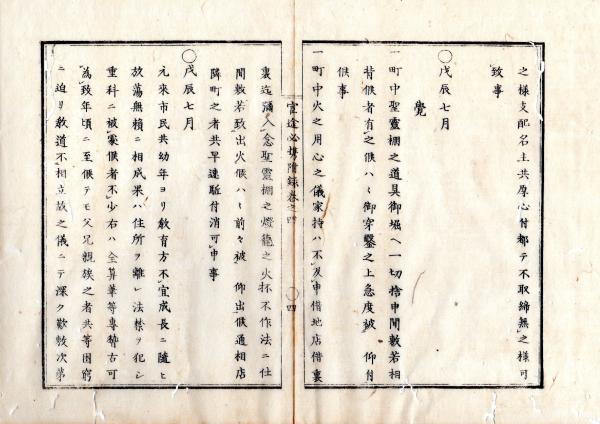 之様支配名主共厚心付都テ不取締無之様可
致事
○戊辰七月
覺
一町中聖靈棚之道具御堀ヘ一切捨申間敷若相
背候者有之候ハヽ御穿鑿之上急度被 仰付
候事
一町中火之用心之儀家持ハ不及申借地店借裏
官途必携附録卷之四 ○四
裏迄彌入念聖靈棚之燈籠之火抔不作法ニ仕
間敷若致出火候ハヽ前々被 仰出候通相店
隣町之者共早速駈付消可申事
○戊辰七月
元來市民共幼年ヨリ教育方不宜成長ニ隨ヒ
放蕩無頼ニ相成果ハ住所ヲ離レ法禁ヲ犯シ
重科ニ被處候者不少右ハ全算筆等專稽古可
為致年頃ニ至候テモ父兄親族之者共等困窮
ニ迫リ教道不相立故之儀ニテ深ク歎敷次第